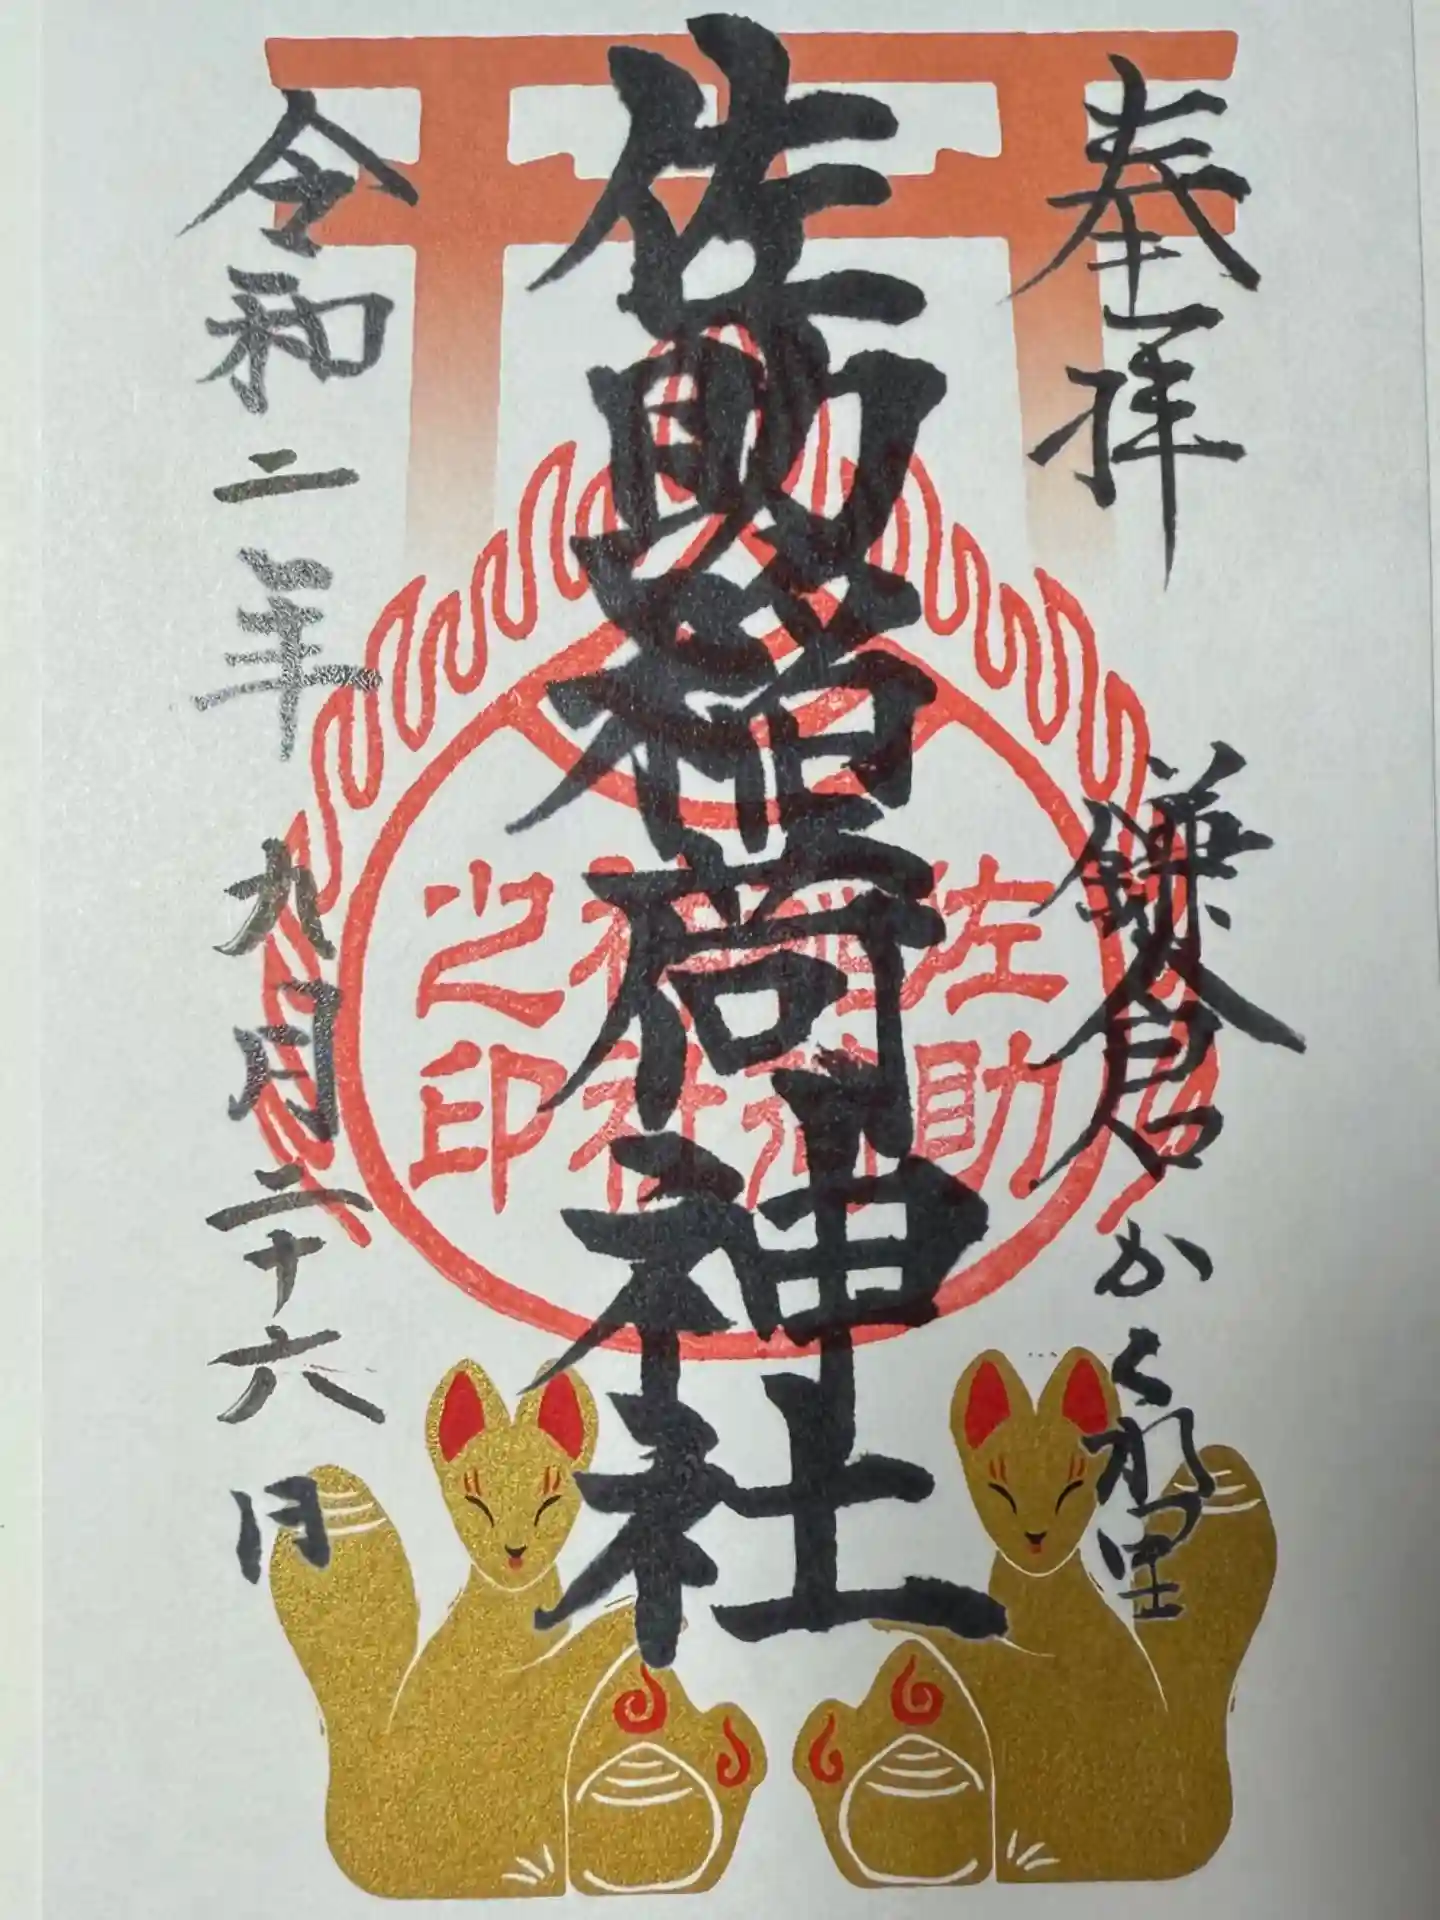 奉拝
鎌倉かくれ里
佐助稲荷神社
佐助稲荷神社之印
令和二年九月二十六日